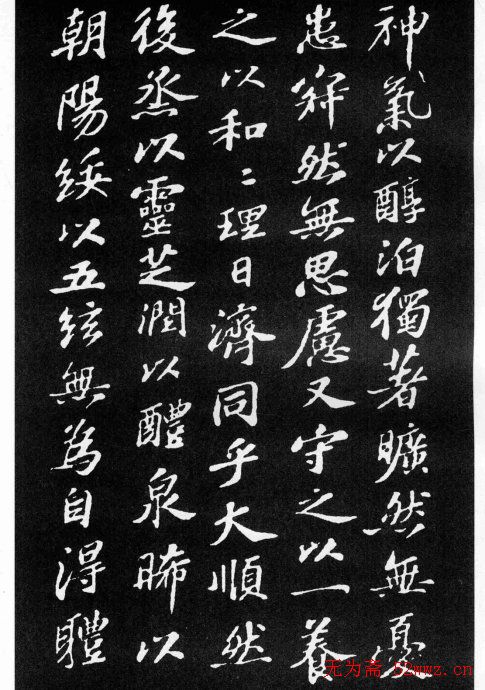 神氣以醇泊獨著曠然無憂
患寂然無思慮又守之以一養
之以和〻理日濟同乎大順然
後烝以靈芝潤以醴泉晞以
朝陽綏以五絃無為自得體
无为斋 52wwz.cn